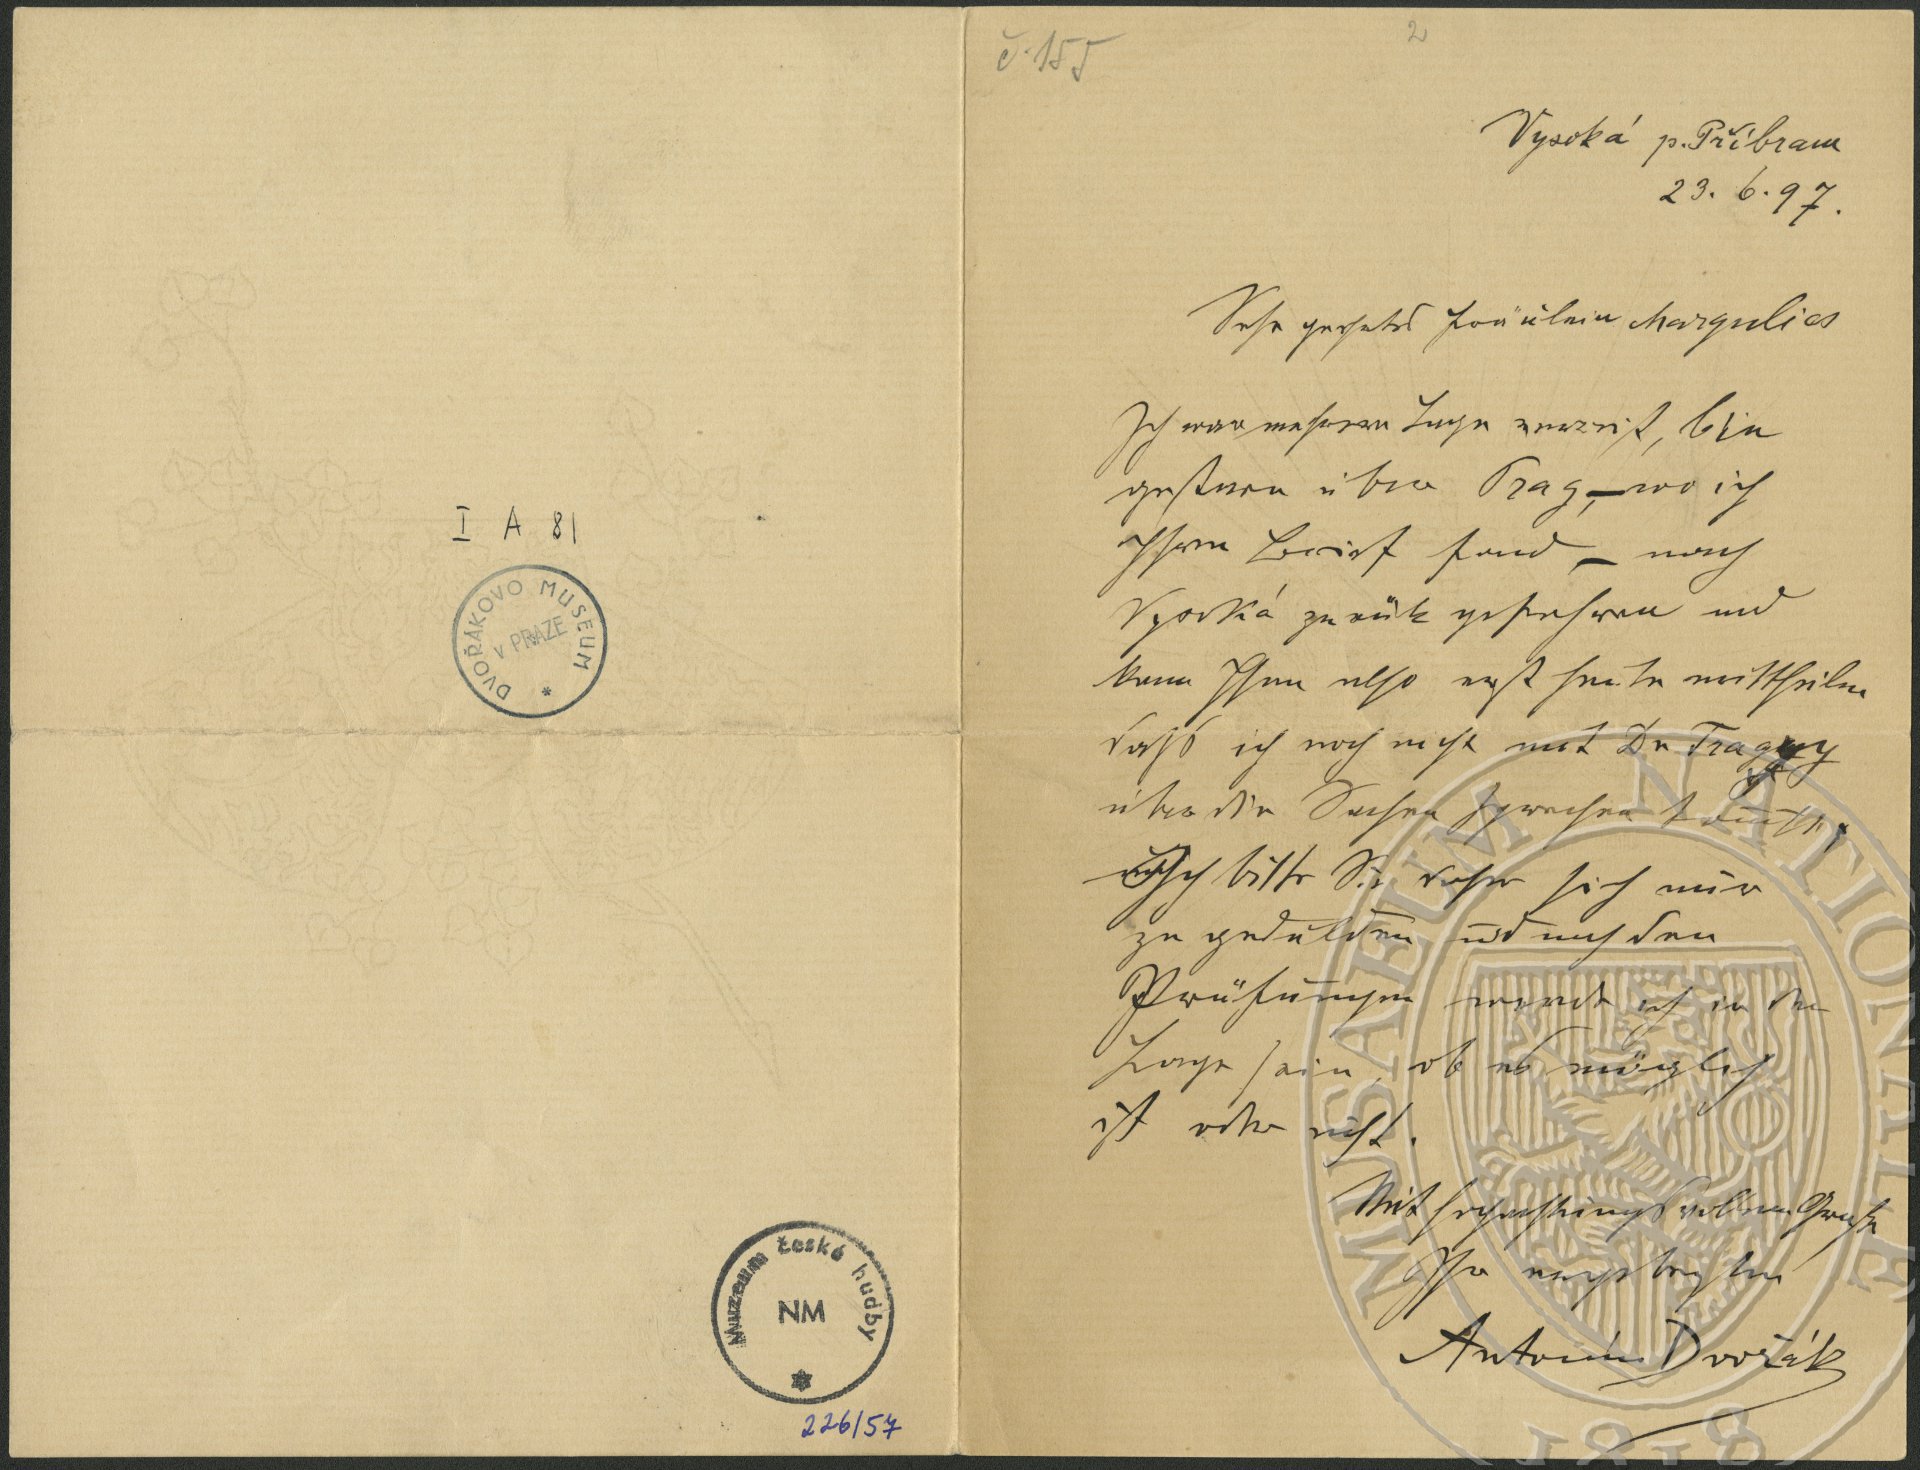 I A 81
DVOŘÁKOVO MUSEUM
V PRAZE
Muzeum České hudby
NM
226/57
č. 155
2
Vysoká p. Příbram
23. 6. 97.
Sehr geehrtes Fräulein Margulies
Ich war mehrere Tage verreist, bin
gestern über Prag, – wo ich
Ihren Brief fand – nach
Vysoká zurück gefahren und
kann Ihnen also erst heute mittheilen
dass ich noch nicht mit Dr Tragy
über die Sachen sprechen konnte,
Ich bitte Sie daher sich nur
zu gedulden und nach den
Prüfungen werde ich in der
Lage sein, ob es möglich
ist oder nicht.
Mit hochachtungsvollem Gruße
Ihr ergebenster
Antonín Dvořák
MUSAEUM NATIONALE
1818